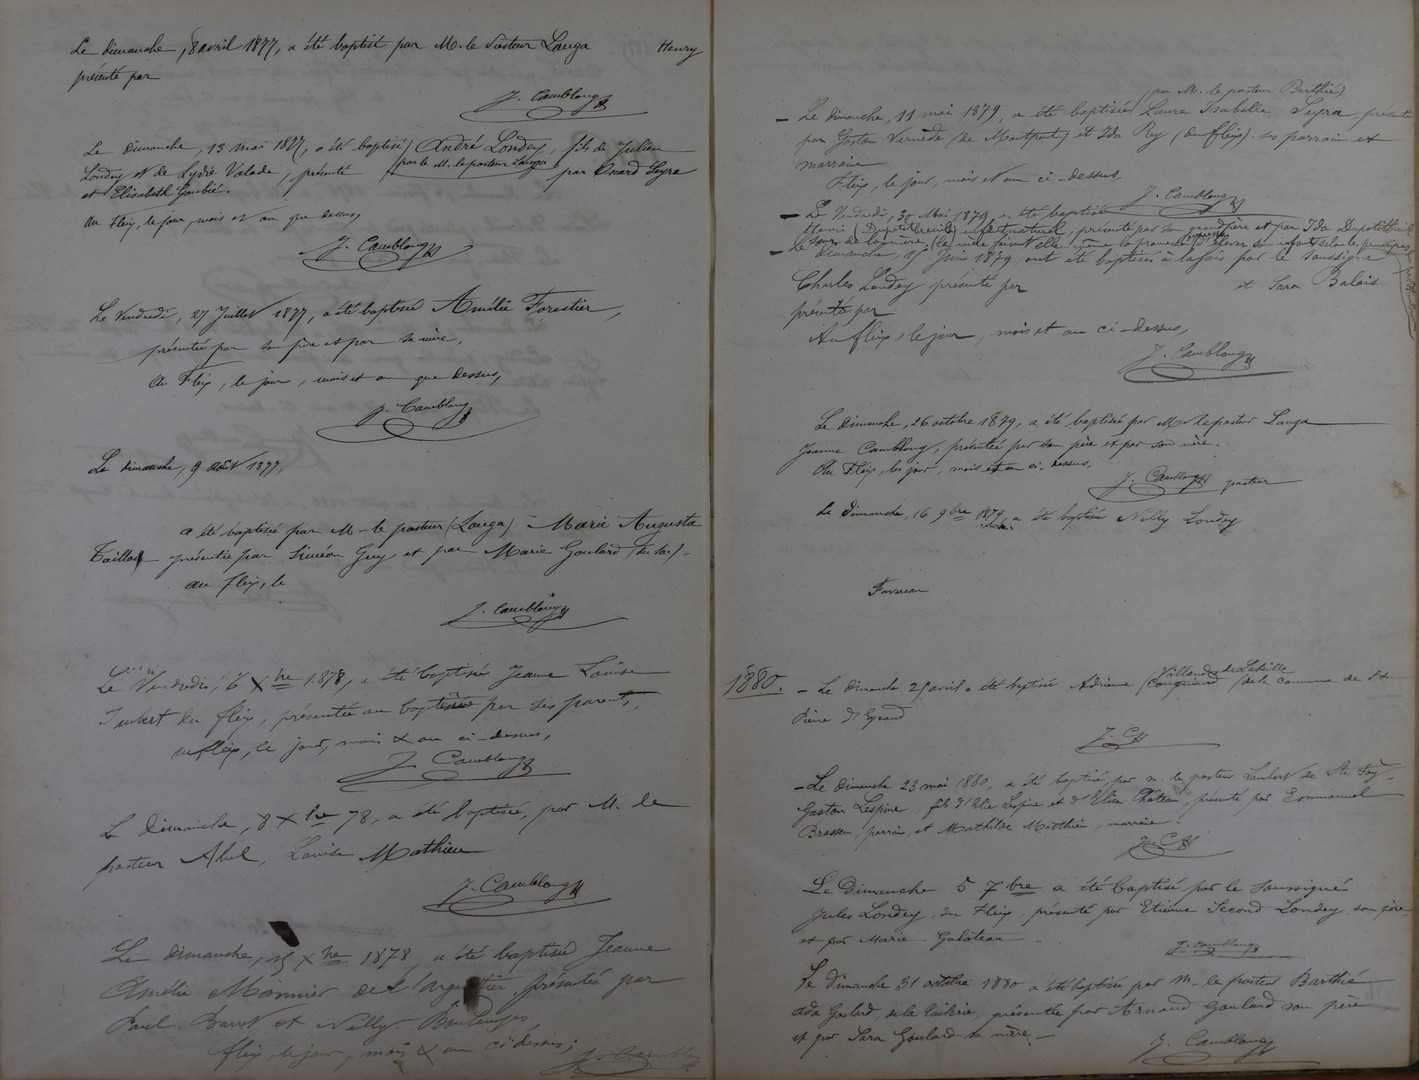 Le dimanche, 8 avril 1877, a été baptisé par M. le Pasteur Lauga Henry
présenté par
J. Camblong
Le dimanche, 13 mai 1877, a été baptisé (par le M. le pasteur Lauga) André Londey, fils de Julien
Londey et de Lydie Valade, présenté par Onard Seyra
et Elisabeth
Au Fleix, le jour, mois et an que dessus,
J. Camblong
Le Vendredi, 27 Juillet 1877, a été baptisée Amélie Forestier,
présentée par son père et par sa mère,
Au Fleix, le jour, mois et an que dessus,
J. Camblong
Le dimanche, 9 août 1877,
a été baptisée par M. le pasteur (Lauga) Marie Augusta
présentée par Siméon Guy et par Marie Goulard
au fleix, le
J. Camblong
Le Vendredi, 6 Xbre 1878, a été baptisée Jeanne Louise
Imbert du fleix, présentée au baptême par ses parents,
au fleix, le jour, mois & an ci-dessus,
J. Camblong
Le dimanche, 8 Xbre 78, a été baptisée, par M. le
pasteur Abel, Louise Mathieu
J. Camblong
Le dimanche, 15 Xbre 1878, a été baptisée Jeanne
Amélie Monnier de présentée par
Paul et Nelly
fleix, le jour, mois & an ci dessus;
J. Camblong
(par M. le pasteur Barthié)
- Le dimanche, 11 mai 1879, a été baptisée Laure Isabelle Seyra, présentée
par Gaston Vernède (de Montfort) et Ida Rey (du fleix), ses parrain et
marraine
Fleix, le jour, mois et an ci-dessus,
J. Camblong
- Le Vendredi, 30 Mai 1879, a été baptisé
Henri enfant naturel, présenté par son grand père et par Ida
soeur de la mère
- Le dimanche, 15 Juin 1879 ont été baptisés à la fois par le soussigné
Charles Londey présenté par et Sara Balois
présenté par
Au fleix, le jour, mois et an ci-dessus,
J. Camblong
Le dimanche, 26 octobre 1879, a été baptisée par M. le pasteur Lauga
Jeanne Camblong, présentée par son père et par son mère.
Au Fleix, les jour, mois et an ci-dessus,
J. Camblong pasteur
Le dimanche, 16 9bre 1879, a été baptisée Nelly Londey
1880. - Le Dimanche 25 avril a été baptisée Adrienne de la commune de St
Pierre d'Eyraud
J. C
- Le Dimanche 23 mai 1880, a été baptisé par m. le pasteur Laubert de Ste Foy,
Gaston Lespine, fils d'Elie Lespine et d'Elisa Chateau, présenté par Emmanuel
parrain, et Mathilde Matthieu, marraine.
J. C
Le Dimanche 5 7bre a été baptisé par le soussigné
Jules Londey, du Fleix, présenté par Etienne Second Londey, son père
et par Marie Galateau
J. Camblong
Le dimanche 31 octobre 1880 a été baptisée par M. le pasteur Barthié
Ada Goulard, de la présentée par Arnaud Goulard son père
et par Sara Goulard sa mère.
J. Camblong